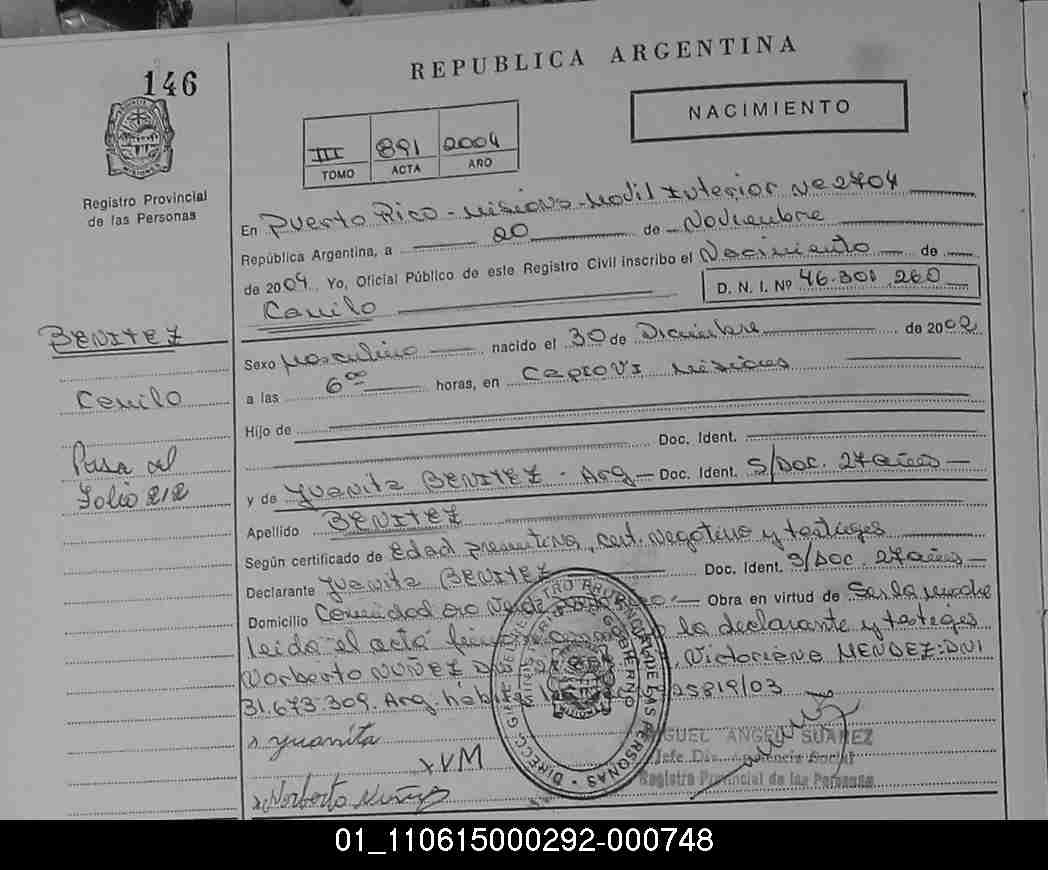 146
REPUBLICA ARGENTINA
NACIMIENTO
III 891 2004
TOMO ACTA AÑO
Registro Provincial
de las Personas
En Puerto Rico - Misiones - Movil Interior Nº 2404
República Argentina, a 20 de Noviembre
de 2004. Yo, Oficial Público de este Registro Civil inscribo el Nacimiento de
Camilo
D. N. I. Nº 46.301.260
BENITEZ
Camilo
Pasa al
Folio 212
Sexo Masculino nacido el 30 de Diciembre de 2002
a las 6 00 horas, en Capiovi Misiones
Hijo de
Doc. Ident.
y de Juanita BENITEZ - Arg. Doc. Ident. S/Doc. 27 años
Apellido BENITEZ
Según certificado de Edad presuntiva, cert. negativo y testigos
Declarante Juanita BENITEZ Doc. Ident. S/Doc. 27 años
Domicilio Comunidad Obra en virtud de Ser la madre
leida el acta la declarante y testigos
Norberto NUÑEZ DNI Victoriano MENDEZ: DNI
31.673.309. Arg. 25819/03
x juanita
x VM
x Norberto Nuñez
MIGUEL ANGEL SUAREZ
Jefe Social
Registro Provincial de las Personas
01_110615000292-000748